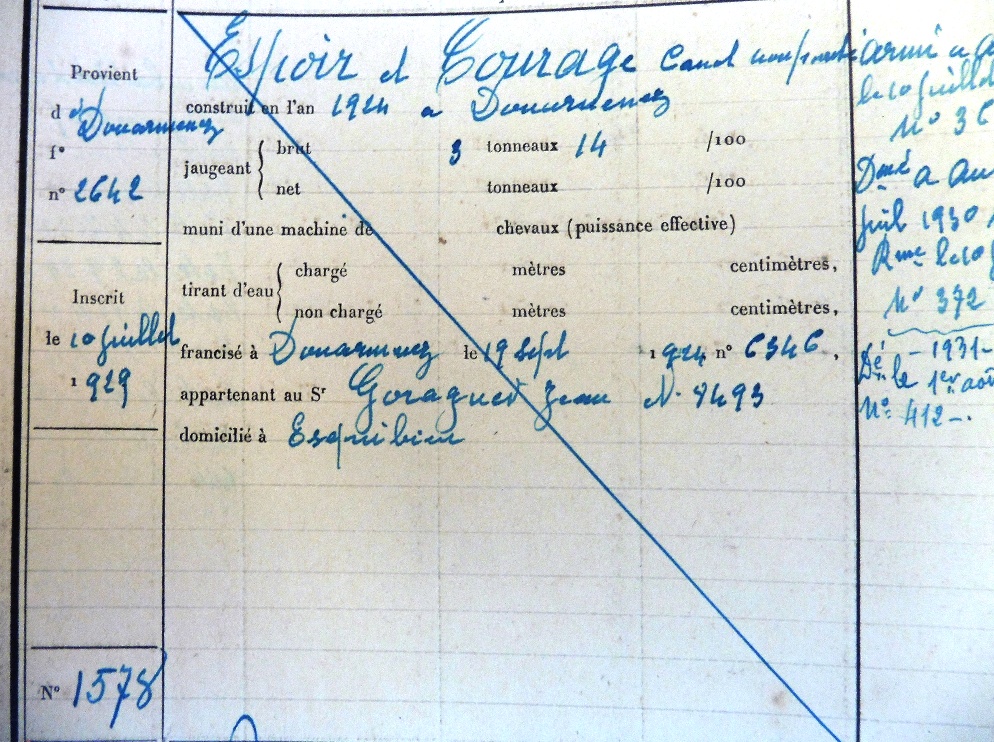 Provient
d e Douarnenez
f°
n° 2642
Inscrit
le 10 juillet
1929
N° 1578
Espoir et Courage Canot non ponté
construit en l'an 1924 a Douarnenez
jaugeant { brut 3 tonneaux 14 /100
net tonneaux /100
muni d'une machine de chevaux (puissance effective)
tirant d'eau { chargé mètres centimètres,
non chargé mètres centimètres,
francisé à Douarnenez le 19 Sept 1924 n° 6346,
appartenant au Sr Goraguer Jean N° 8493
domicilié à Esquibien
armé a
le 10 juillet
N° 36
Dmé a Au
juil 1930
Rmé le 10
N° 372
- 1931 -
Dé le 1er aoû
N° 412 -.